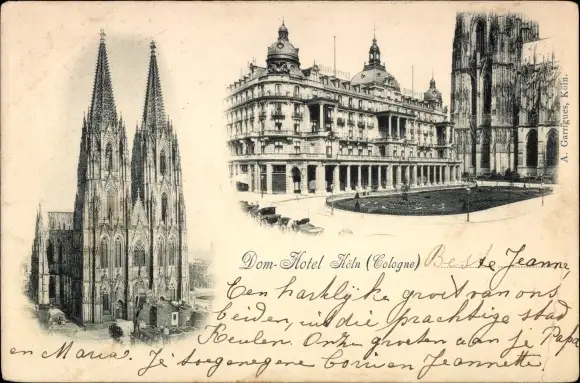 A. Garrigues, Köln.
Dom-Hotel Köln (Cologne)
Beste Jeanne,
Een hartelijke groet van ons
beiden, uit die prachtige stad
Keulen. Onze groeten aan je Papa
en Maria. Je toegenegene Jeannette.